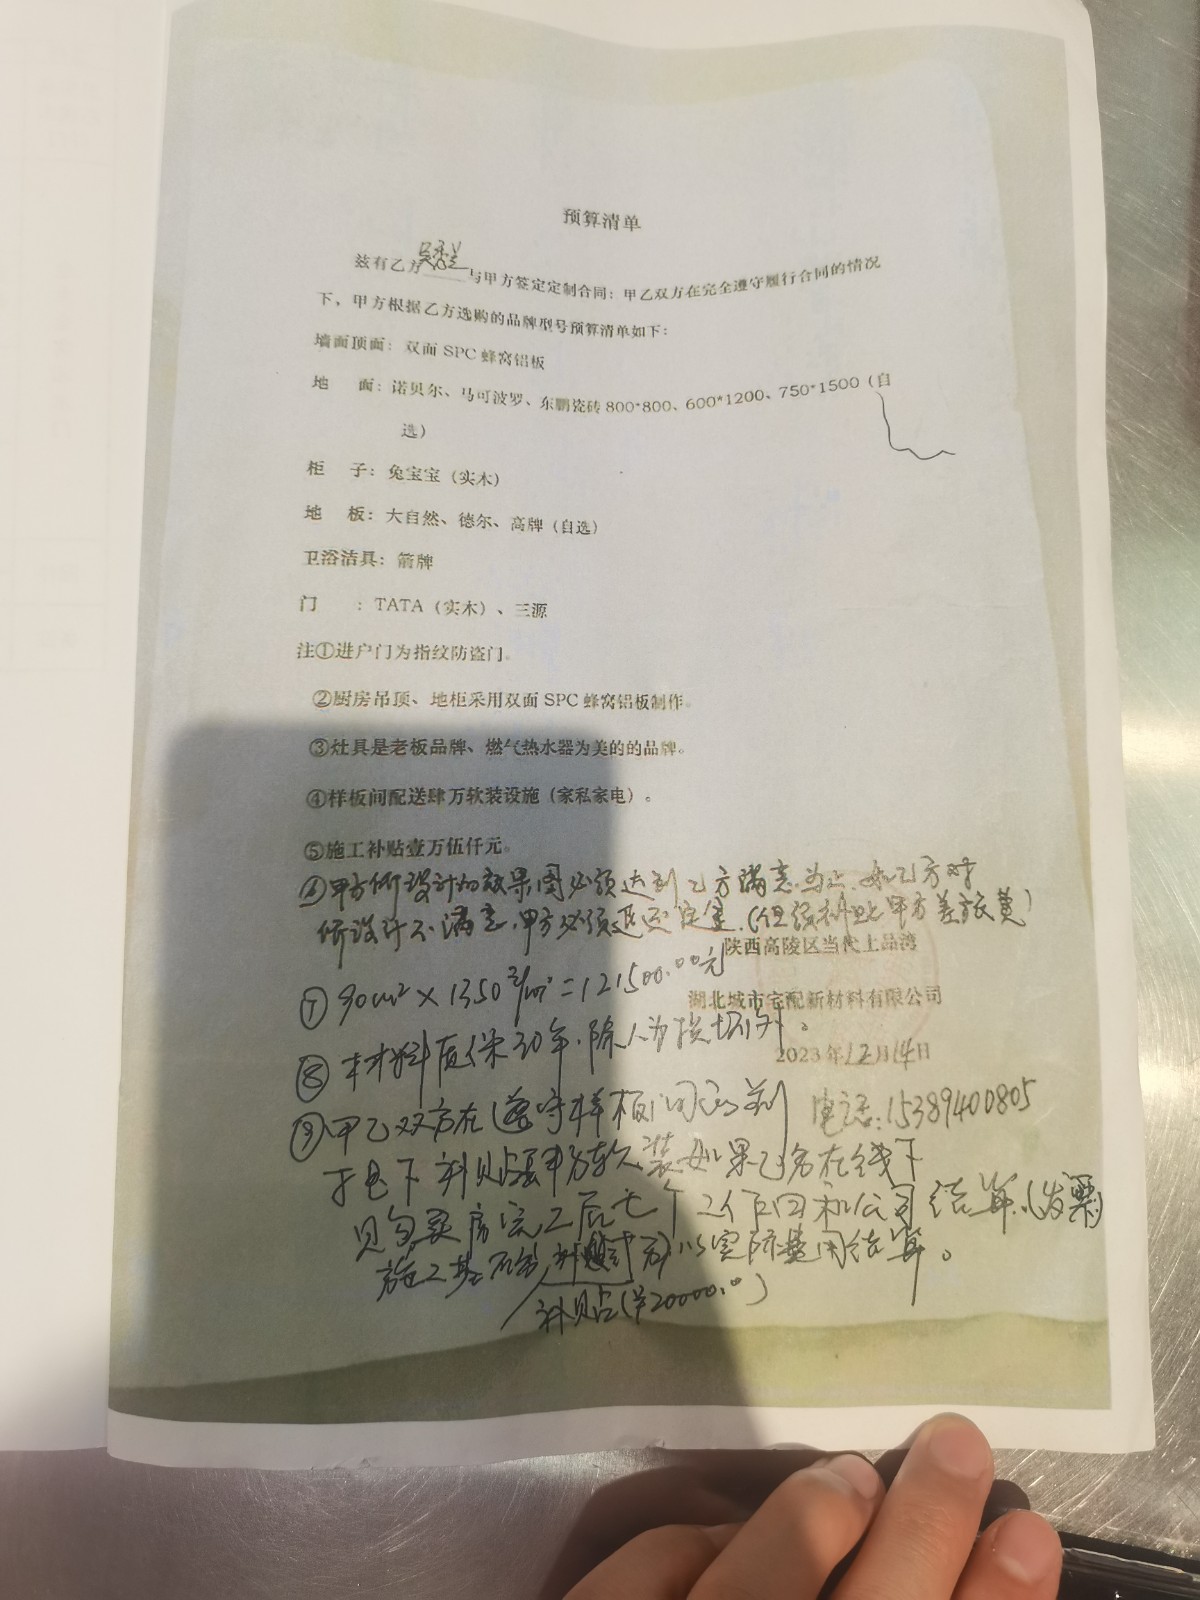 预算清单
兹有乙方 与甲方签定定制合同：甲乙双方在完全遵守履行合同的情况
下，甲方根据乙方选购的品牌型号预算清单如下：
墙面顶面：双面 SPC 蜂窝铝板
地 面：诺贝尔、马可波罗、东鹏瓷砖 800*800、600*1200、750*1500（自
选）
柜 子：兔宝宝（实木）
地 板：大自然、德尔、高牌（自选）
卫浴洁具：箭牌
门 ：TATA（实木）、三源
注①进户门为指纹防盗门。
②厨房吊顶、地柜采用双面 SPC 蜂窝铝板制作。
③灶具是老板品牌、燃气热水器为美的的品牌。
④样板间配送肆万软装设施（家私家电）。
⑤施工补贴壹万伍仟元。
⑥甲方所设计的效果图必须达到乙方满意为止.如乙方对
所设计不满意.甲方必须退还定金.(但须补贴甲方差旅费)
陕西高陵区当代上品湾
⑦ 90m² × 1350元/m²=121500.00元
湖北城市宅配新材料有限公司
⑧ 材料质保30年.除人为损坏外。
2023年12月14日
⑨甲乙双方在遵守样板间的前
电话:15389400805
下 补贴 软装如果乙方在线下
购买房完工后七个工作日和公司结算.(发票)
施工基础 以实际费用结算。
补贴(¥20000.0)